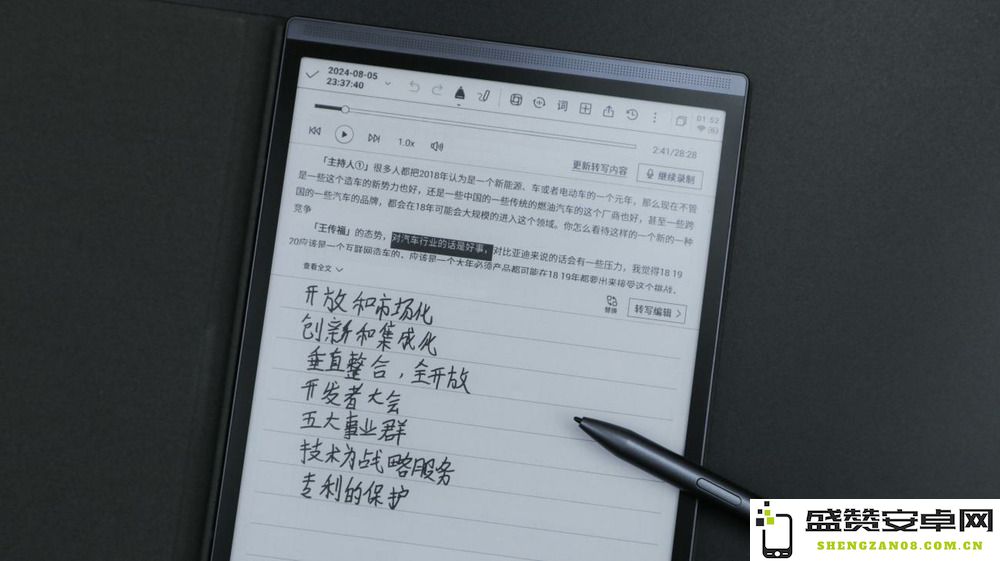 2024-08-05
23:37:40
词
01:52
2:41/28:28
1.0x
更新转写内容
继续录制
「主持人①」很多人都把2018年认为是一个新能源、车或者电动车的一个元年，那么现在不管
是一些这个造车的新势力也好，还是一些中国的一些传统的燃油汽车的这个厂商也好，甚至一些跨
国的一些汽车的品牌，都会在18年可能会大规模的进入这个领域。你怎么看待这样的一个新的一种
竞争
「王传福」的态势，对汽车行业的话是好事，对比亚迪来说的话会有一些压力，我觉得18 19
20应该是一个互联网造车的，应该是一个大年必须产品都可能在18 19年都要出来接受这个挑战，
查看全文
替换
转写编辑
开放和市场化
创新和集成化
垂直整合，全开放
开发者大会
五大事业群
技术为战略服务
专利的保护
盛赞安卓网
SHENGZAN08.COM.CN